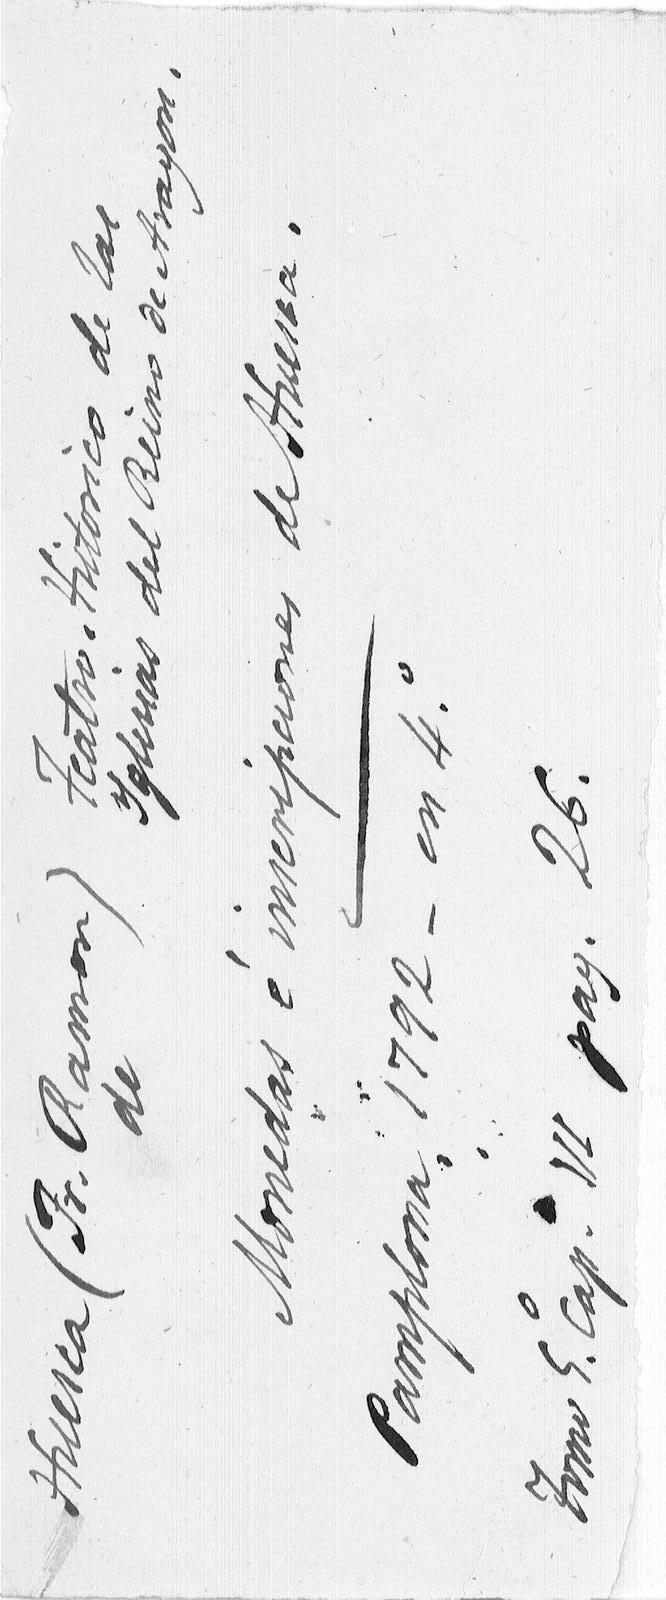 Huesca (Fr. Ramon) Teatro Historico de las
de Yglesias del Reino de Aragon.
Monedas é inscripciones de Huesca.
Pamplona, 1792 - en 4.º
Tomo 5.º Cap. VI pag. 26.